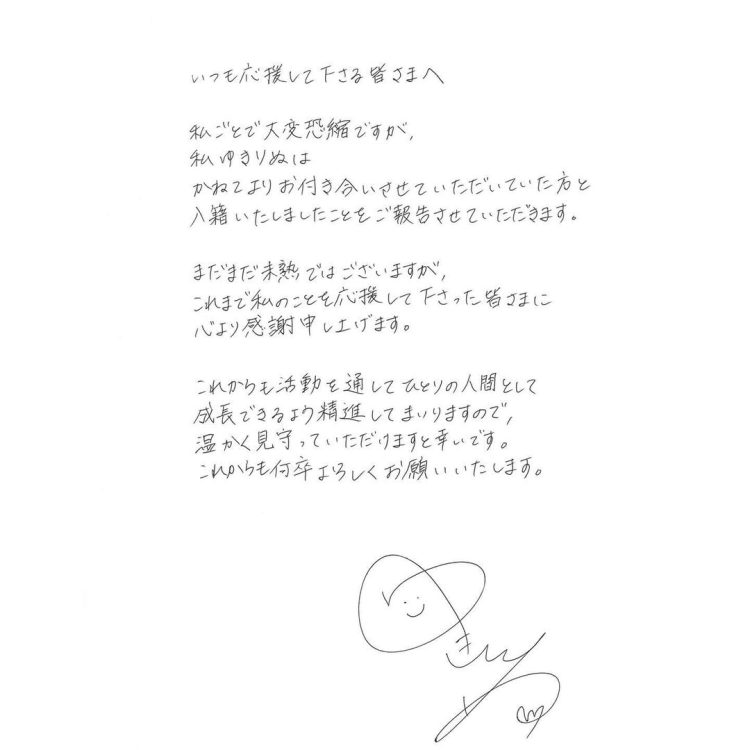 いつも応援して下さる皆さまへ
私ごとで大変恐縮ですが,
私ゆきりぬは
かねてよりお付き合いさせていただいていた方と
入籍いたしましたことをご報告させていただきます。
まだまだ未熟ではございますが,
これまで私のことを応援して下さった皆さまに
心より感謝申し上げます。
これからも活動を通してひとりの人間として
成長できるよう精進してまいりますので,
温かく見守っていただけますと幸いです。
これからも何卒よろしくお願いいたします。
ゆきりぬ